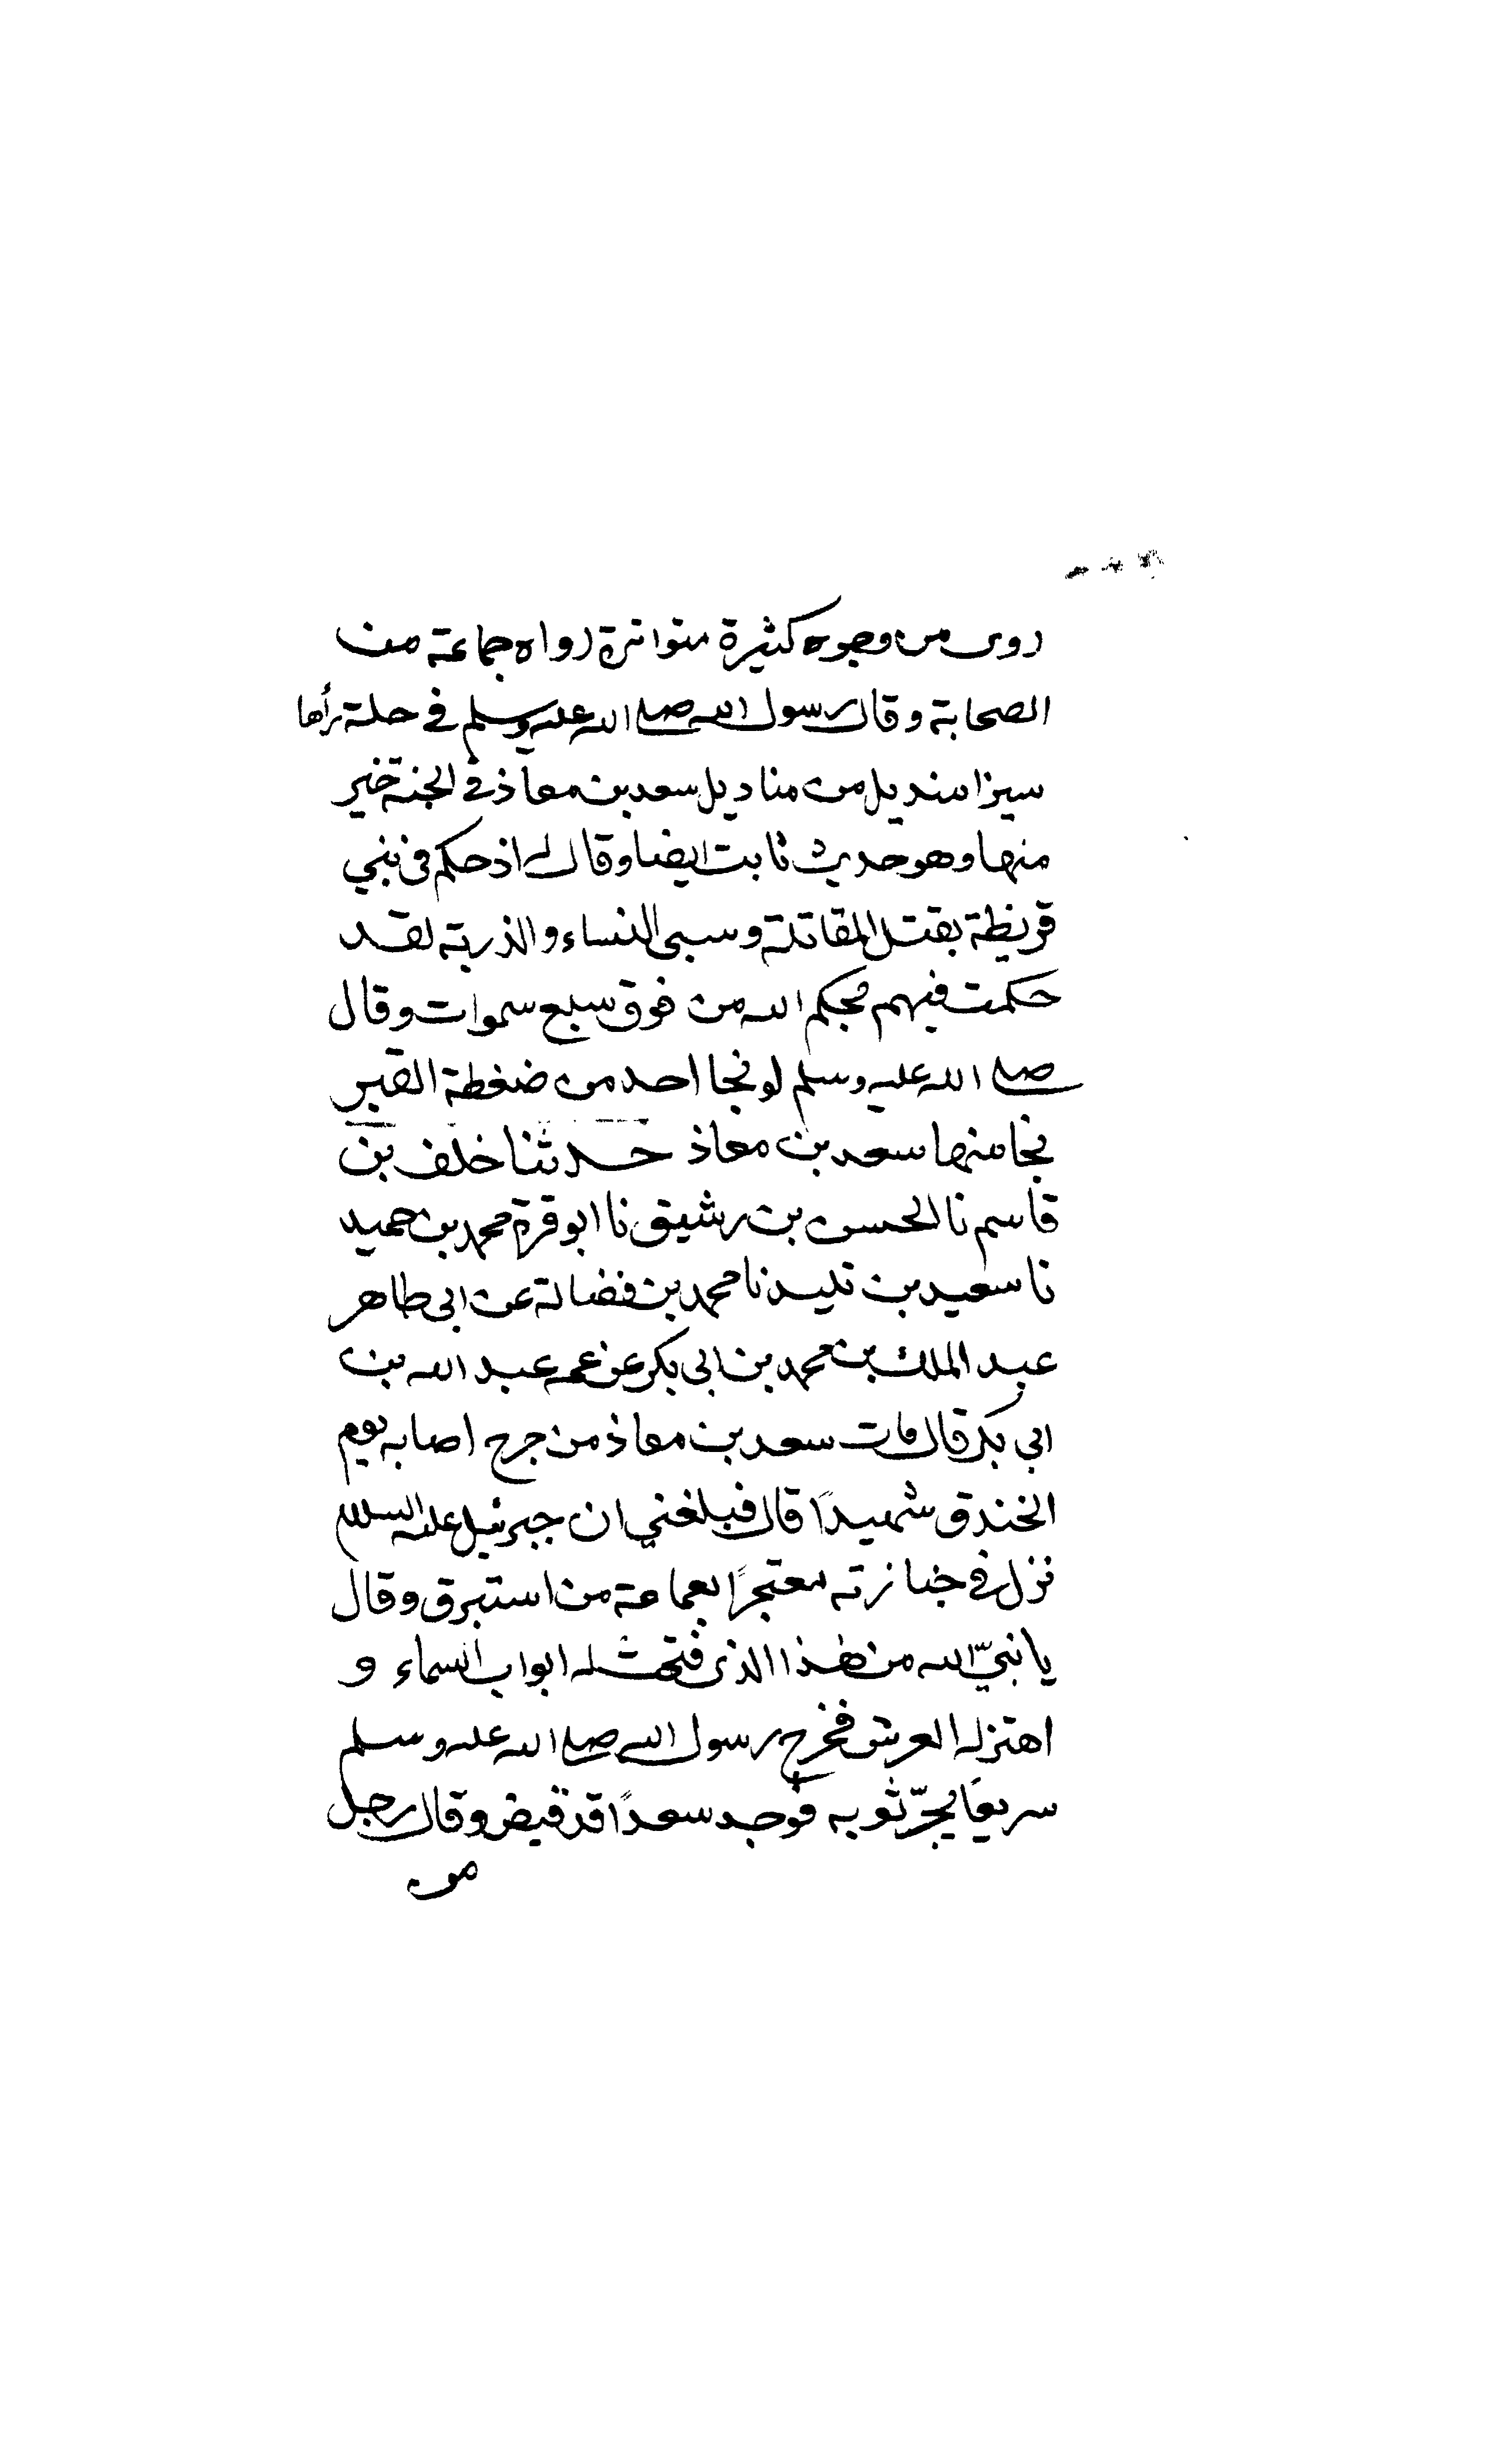 روى من وجوه كثيرة متواترة رواه جماعة من
الصحابة وقال رسول الله صلى الله عليه وسلم في حلة رأها
سيرا منديل من مناديل سعد بن معاذ في الجنة خير
منها وهو حديث ثابت ايضا وقال له اذ حكم في بني
قريظة بقتل المقاتلة وسبي النساء والذرية لقد
حكمت فيهم بحكم الله من فوق سبع سموات وقال
صلى الله عليه وسلم لو نجا احد من ضغطة القبر
نجا منها سعد بن معاذ حدثنا خلف بن
قاسم نا الحسن بن رشيق نا ابو قرة محمد بن حميد
نا سعيد بن تليد نا محمد بن فضالة عن ابى طاهر
عبد الملك بن محمد بن ابى بكر عن عمه عبد الله بن
ابي بكر قال مات سعد بن معاذ من جرح اصابه يوم
الخندق شهيدًا قال فبلغني ان جبرئيل عليه السلام
نزل في جنازته معتجرًا بعمامة من استبرق وقال
يا نبيّ الله من هذا الذى فتحت له ابواب السماء و
اهتز له العرش فخرج رسول الله صلى الله عليه وسلم
سريعًا يجرّ ثوبه فوجد سعدًا قد قبض وقال رجل
من